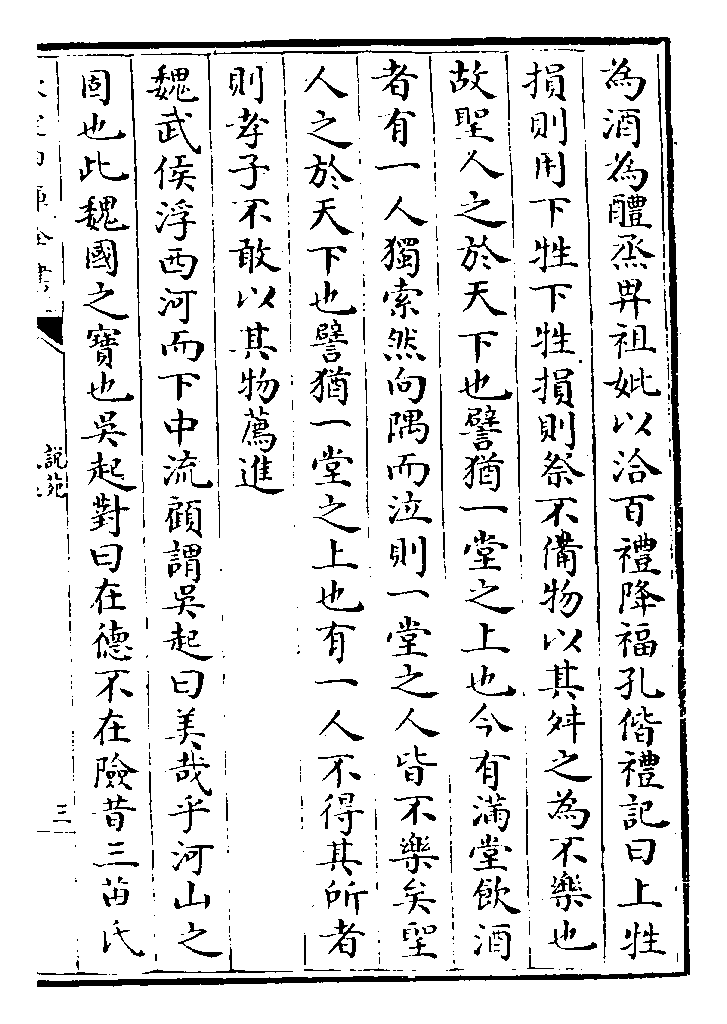 為酒為醴烝畀祖妣以洽百禮降福孔偕禮記曰上牲
損則用下牲下牲損則祭不備物以其舛之為不樂也
故聖人之於天下也譬猶一堂之上也今有滿堂飲酒
者有一人獨索然向隅而泣則一堂之人皆不樂矣聖
人之於天下也譬猶一堂之上也有一人不得其所者
則孝子不敢以其物薦進
魏武侯浮西河而下中流顧謂吳起曰美哉乎河山之
固也此魏國之寶也吳起對曰在德不在險昔三苗氏
全書
說苑
三